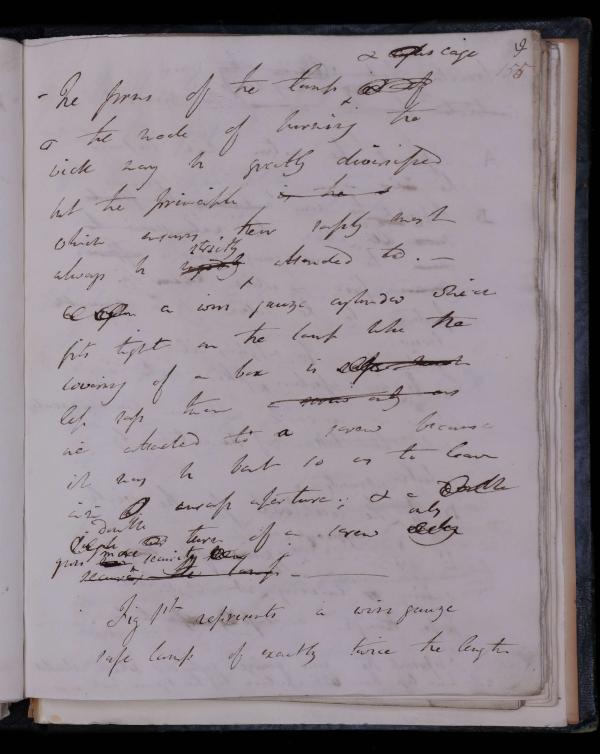 & cage
155
- The forms of the lamp
& the mode of burning the
wick may be greatly diversified
but the principle is the
which ensures their safety must
strictly
always be attended to. —
a wire gauze cylinder which
fits tight on the lamp like the
covering of a box is
less safe than a screw only
attached to a screw because
it may be bent so as to leave
aperture; & a double
double only
turn of a screw
gives more security
securing the lamp. —
Fig 1st represents a wire gauze
safe lamp of exactly twice the length